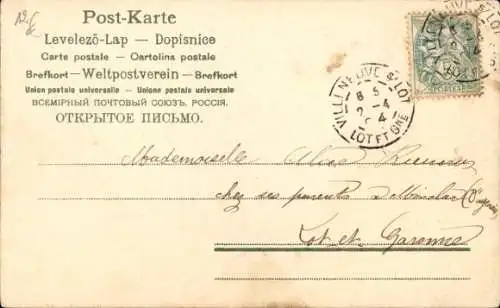 Post-Karte
Levelező-Lap — Dopisnice
Carte postale — Cartolina postale
Brefkort—Weltpostverein—Brefkort
Union postale universelle — Unione postale universale
ВСЕМІРНЫЙ ПОЧТОВЫЙ СОЮЗЪ. РОССІЯ.
ОТКРЫТОЕ ПИСЬМО.
VILLENEUVE S/LOT
8 5
2 -4
04
LOT ET GNE
Mademoiselle Alice
chez ses parents à
Lot-et-Garonne